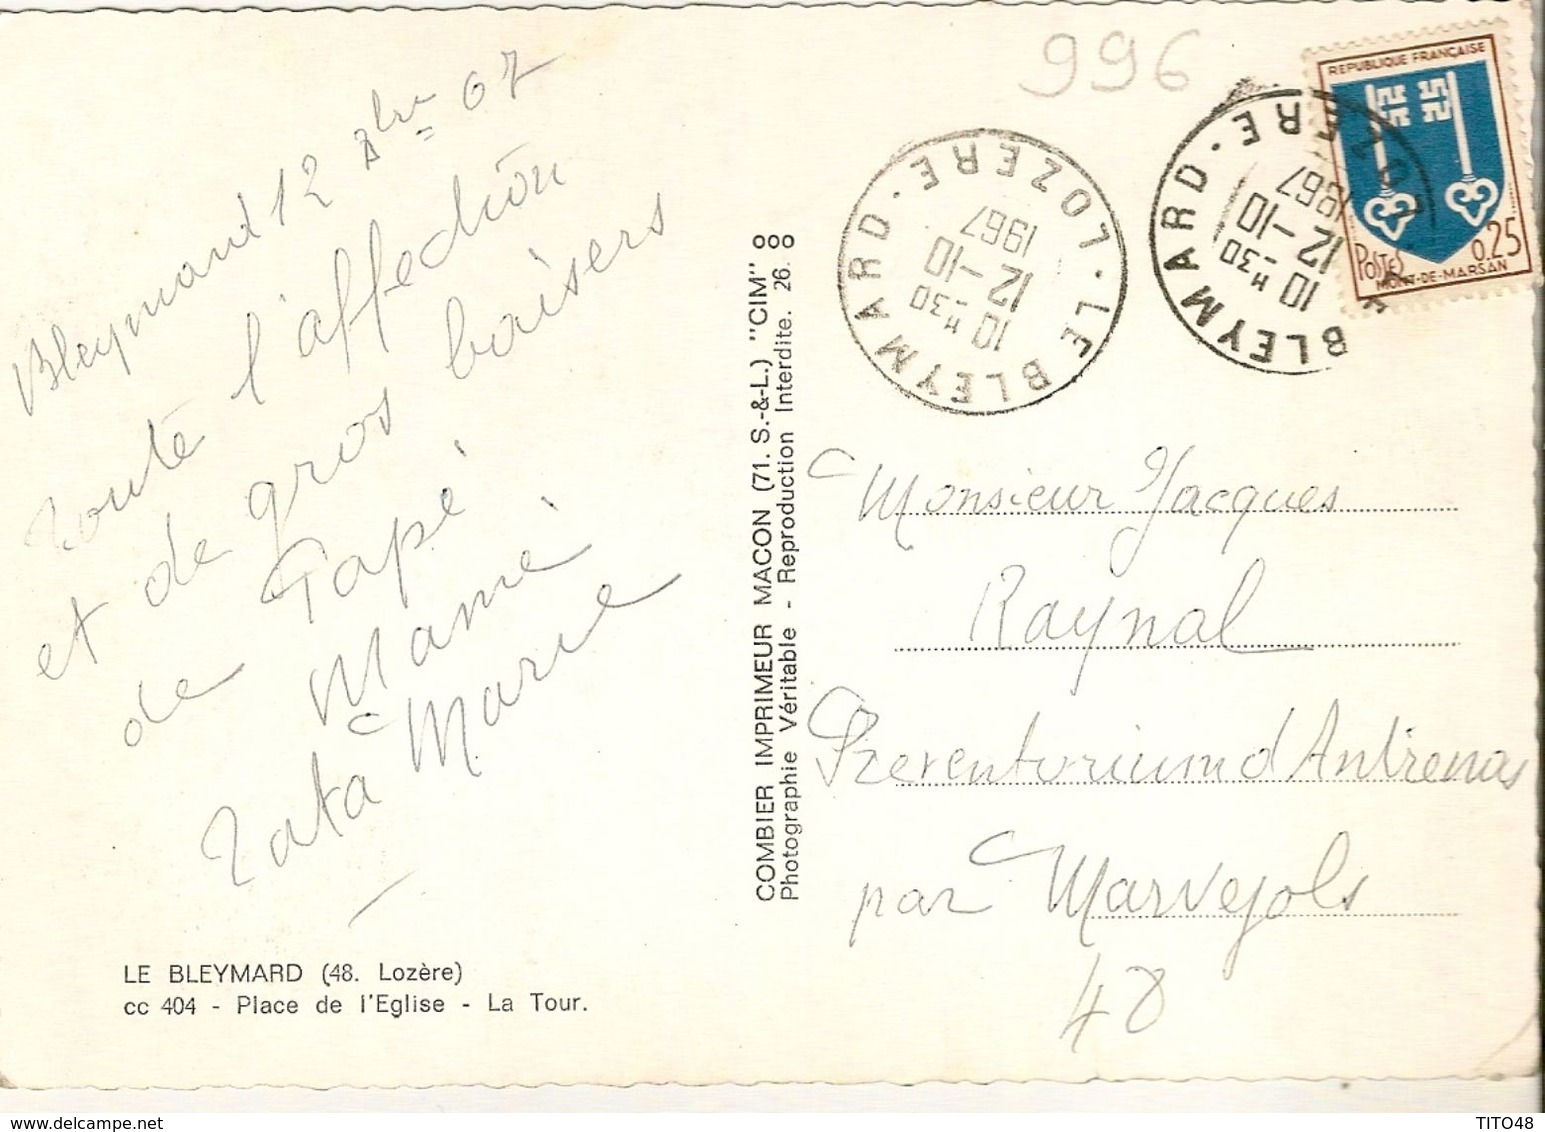 Bleymard 12 8bre 67
Toute l'affection
et de gros baisers
de Papé
Mamé
Tata Marie
LE BLEYMARD (48. Lozère)
cc 404 - Place de l'Eglise - La Tour.
COMBIER IMPRIMEUR MACON (71. S.-&-L.) "CIM"
Photographie Véritable - Reproduction Interdite. 26. 8
996
LE BLEYMARD · LOZERE
10 H30
12-10
1967
LE BLEYMARD · LOZERE
10 H30
12-10
1967
REPUBLIQUE FRANÇAISE
POSTES
0,25
MONT-DE-MARSAN
Monsieur Jacques
Raynal
Preventorium d'Antrenas
par Marvejols
48
TITO48